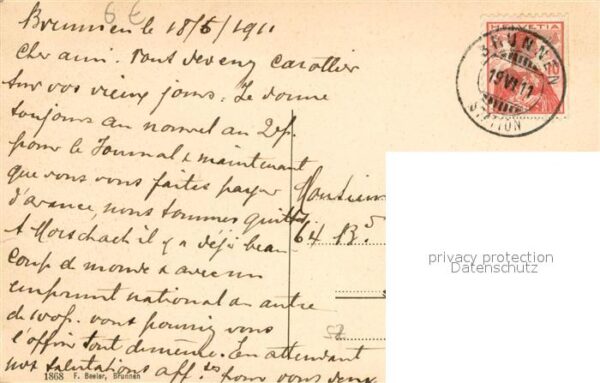 6 €
Brunnen le 18/6/1911
Cher ami. Vous devenez carottier
sur vos vieux jours. Je donne
toujours au nouvel an 2 fr
pour le Journal & maintenant
que vous vous faites payer
d'avance, nous sommes quittes
A Morschach il y a déjà beau-
coup de monde & avec un
emprunt national au autre
de vous pourriez vous
l'offrir tout de même. En attendant
nos salutations aff. ses pour vous deux
HELVETIA
10
BRUNNEN
19 VI 11
STATION
Monsieur
64 Bd
privacy protection
Datenschutz
1868 F. Beeler, Brunnen